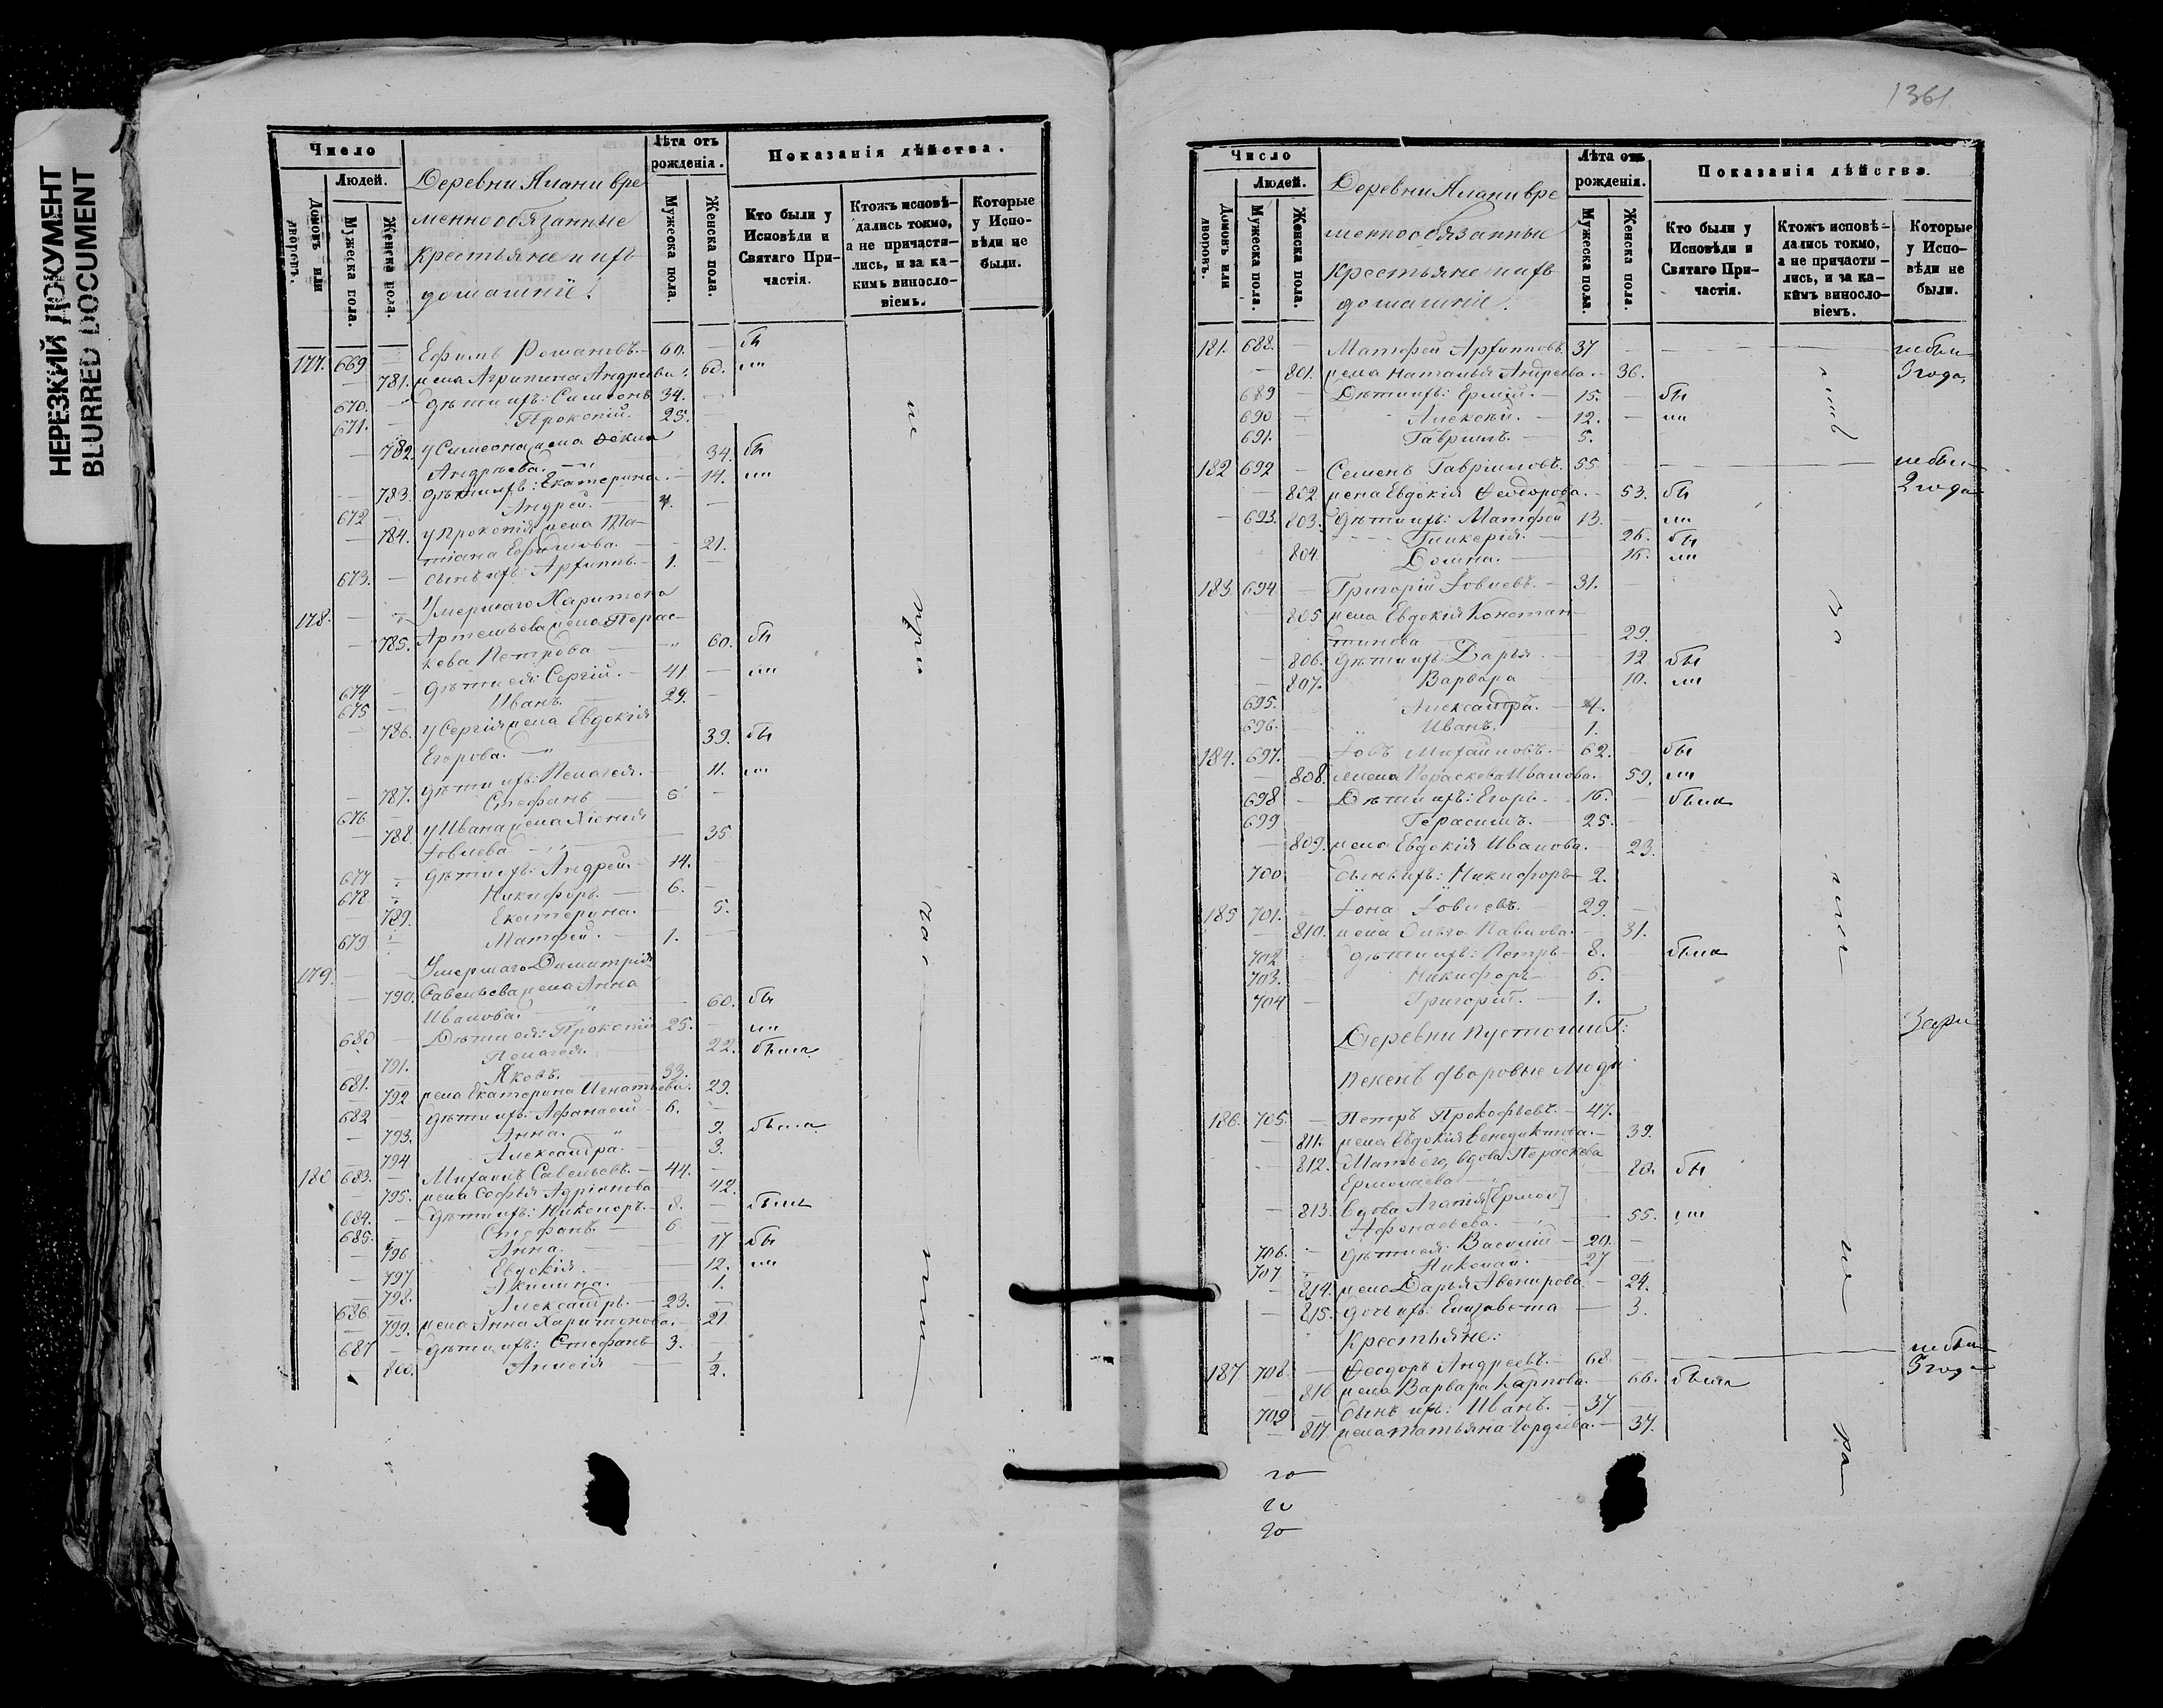 НЕРЕЗКИЙ ДОКУМЕНТ
BLURRED DOCUMENT
Число
Людей.
Домовъ или дворовъ.
Мужеска пола.
Женска пола.
Деревни вре
меннообязанные
Крестьяне и ихъ
домашніи.
Лѣта отъ рожденія.
Мужеска пола.
Женска пола.
Показанія дѣйства.
Кто были у Исповѣди и Святаго Причастія.
Ктожъ исповѣдались токмо, а не причастились, и за какимъ винословіемъ.
Которые у Исповѣди не были.
177. 669 Ефимъ Романовъ. 60. бы
781. жена Агрипина Андреева. 60. ли
670. дѣти ихъ: Симеонъ 34.
671. Прокопій. 25.
782. у Симеона жена Фекла
Андреева. 34. бы
783. дѣти ихъ: Екатерина. 14. ли
672 Андрей. 4.
784. у Прокопія жена Та-
тіана Ефимова. 21.
673. сынъ ихъ: Архиппъ. 1.
178. Умершаго Харитона
785. Артемьева жена Парас-
кева Петрова 60. бы
674 дѣти ея: Сергій. 41 ли
675 Иванъ. 29.
786. у Сергія жена Евдокія
Егорова. 39. бы
787. дѣти ихъ: Пелагея. 11. ли
676 Стефанъ 6
788. у Ивана жена Ксенія
Іовлева 35
677 дѣти ихъ: Андрей. 14.
678 Никифоръ. 6.
789. Екатерина. 5.
679 Матфей. 1.
179. Умершаго Димитрія
790. Савельева жена Анна
Иванова. 60. бы
680 Дѣти ея: Прокопій 25. ли
791. Пелагея. 22. была
681. Яковъ. 33.
792 жена Екатерина Игнатьева. 29.
682 дѣти ихъ: Афанасій 6.
793. Анна. 9. была
794 Александра. 3.
180 683. Михаилъ Савельевъ. 44.
795. жена Софья Адріанова 42.
684. Дѣти ихъ: Никоноръ. 8. былъ
685. Стефанъ. 6
796 Анна. 17 бы
797 Евдокія. 12. ли
798. Акилина. 1.
686 Александръ. 23.
799. жена Анна Харитонова. 21
687 дѣти ихъ: Стефанъ 3.
800. Анисія 2.
не
при
ча
сти
1361
Число
Людей.
Домовъ или дворовъ.
Мужеска пола.
Женска пола.
Деревни вре
меннообязанные
Крестьяне и ихъ
домашніе.
Лѣта отъ рожденія.
Мужеска пола.
Женска пола.
Показанія дѣйства.
Кто были у Исповѣди и Святаго Причастія.
Ктожъ исповѣдались токмо, а не причастились, и за какимъ винословіемъ.
Которые у Исповѣди не были.
181. 688. Матфей Архипповъ. 37 не былъ
801. жена Наталья Андреева. 36. 3 года
689 Дѣти ихъ: Ермій. 15. бы
690 Алексѣй. 12. ли
691. Гавріилъ. 5.
182 692 Семенъ Гавріиловъ. 55 не былъ
802. жена Евдокія Феодорова. 53. бы 2 года
693. 803. Дѣти ихъ: Матфей 13. ли
Гликерія. 26. бы
804. Домна. 16. ли
183 694 Григорій Іовлевъ. 31.
805 жена Евдокія Констан-
тинова 29.
806. дѣти ихъ: Дарья 12 бы
807. Варвара 10. ли
695. Александръ. 4.
696. Иванъ. 1.
184. 697. Іовъ Михайловъ. 62. бы
808. жена Параскева Иванова. 59. ли
698 Дѣти ихъ: Егоръ. 16. былъ
699 Герасимъ. 25.
809. жена Евдокія Иванова. 23.
700 сынъ ихъ: Никифоръ 2.
185 701. Іона Іовлевъ. 29.
810. жена Ольга Павлова. 31.
702 дѣти ихъ: Петръ 8. былъ
703. Никифоръ 6.
704 Григорій. 1.
Деревни Г:
дворовые люди
186. 705. Петръ Прокофьевъ. 47.
811. жена Евдокія Венедиктова. 39.
812. Мать его, вдова Параскева
Ермолаева 80. бы
813. Вдова Агапія
Афонасьева. 55. ли
706. дѣти ея: Василій 20.
707 Николай. 27
814. жена Дарья 24.
815. дочь ихъ: Елизавета 3.
Крестьяне:
187. 708. Феодоръ Андреевъ. 68 не былъ
816 жена Варвара Карпова. 66. была 3 года
709 сынъ ихъ: Иванъ. 37
817. жена Татьяна Гордѣева. 37.
за
не
ра